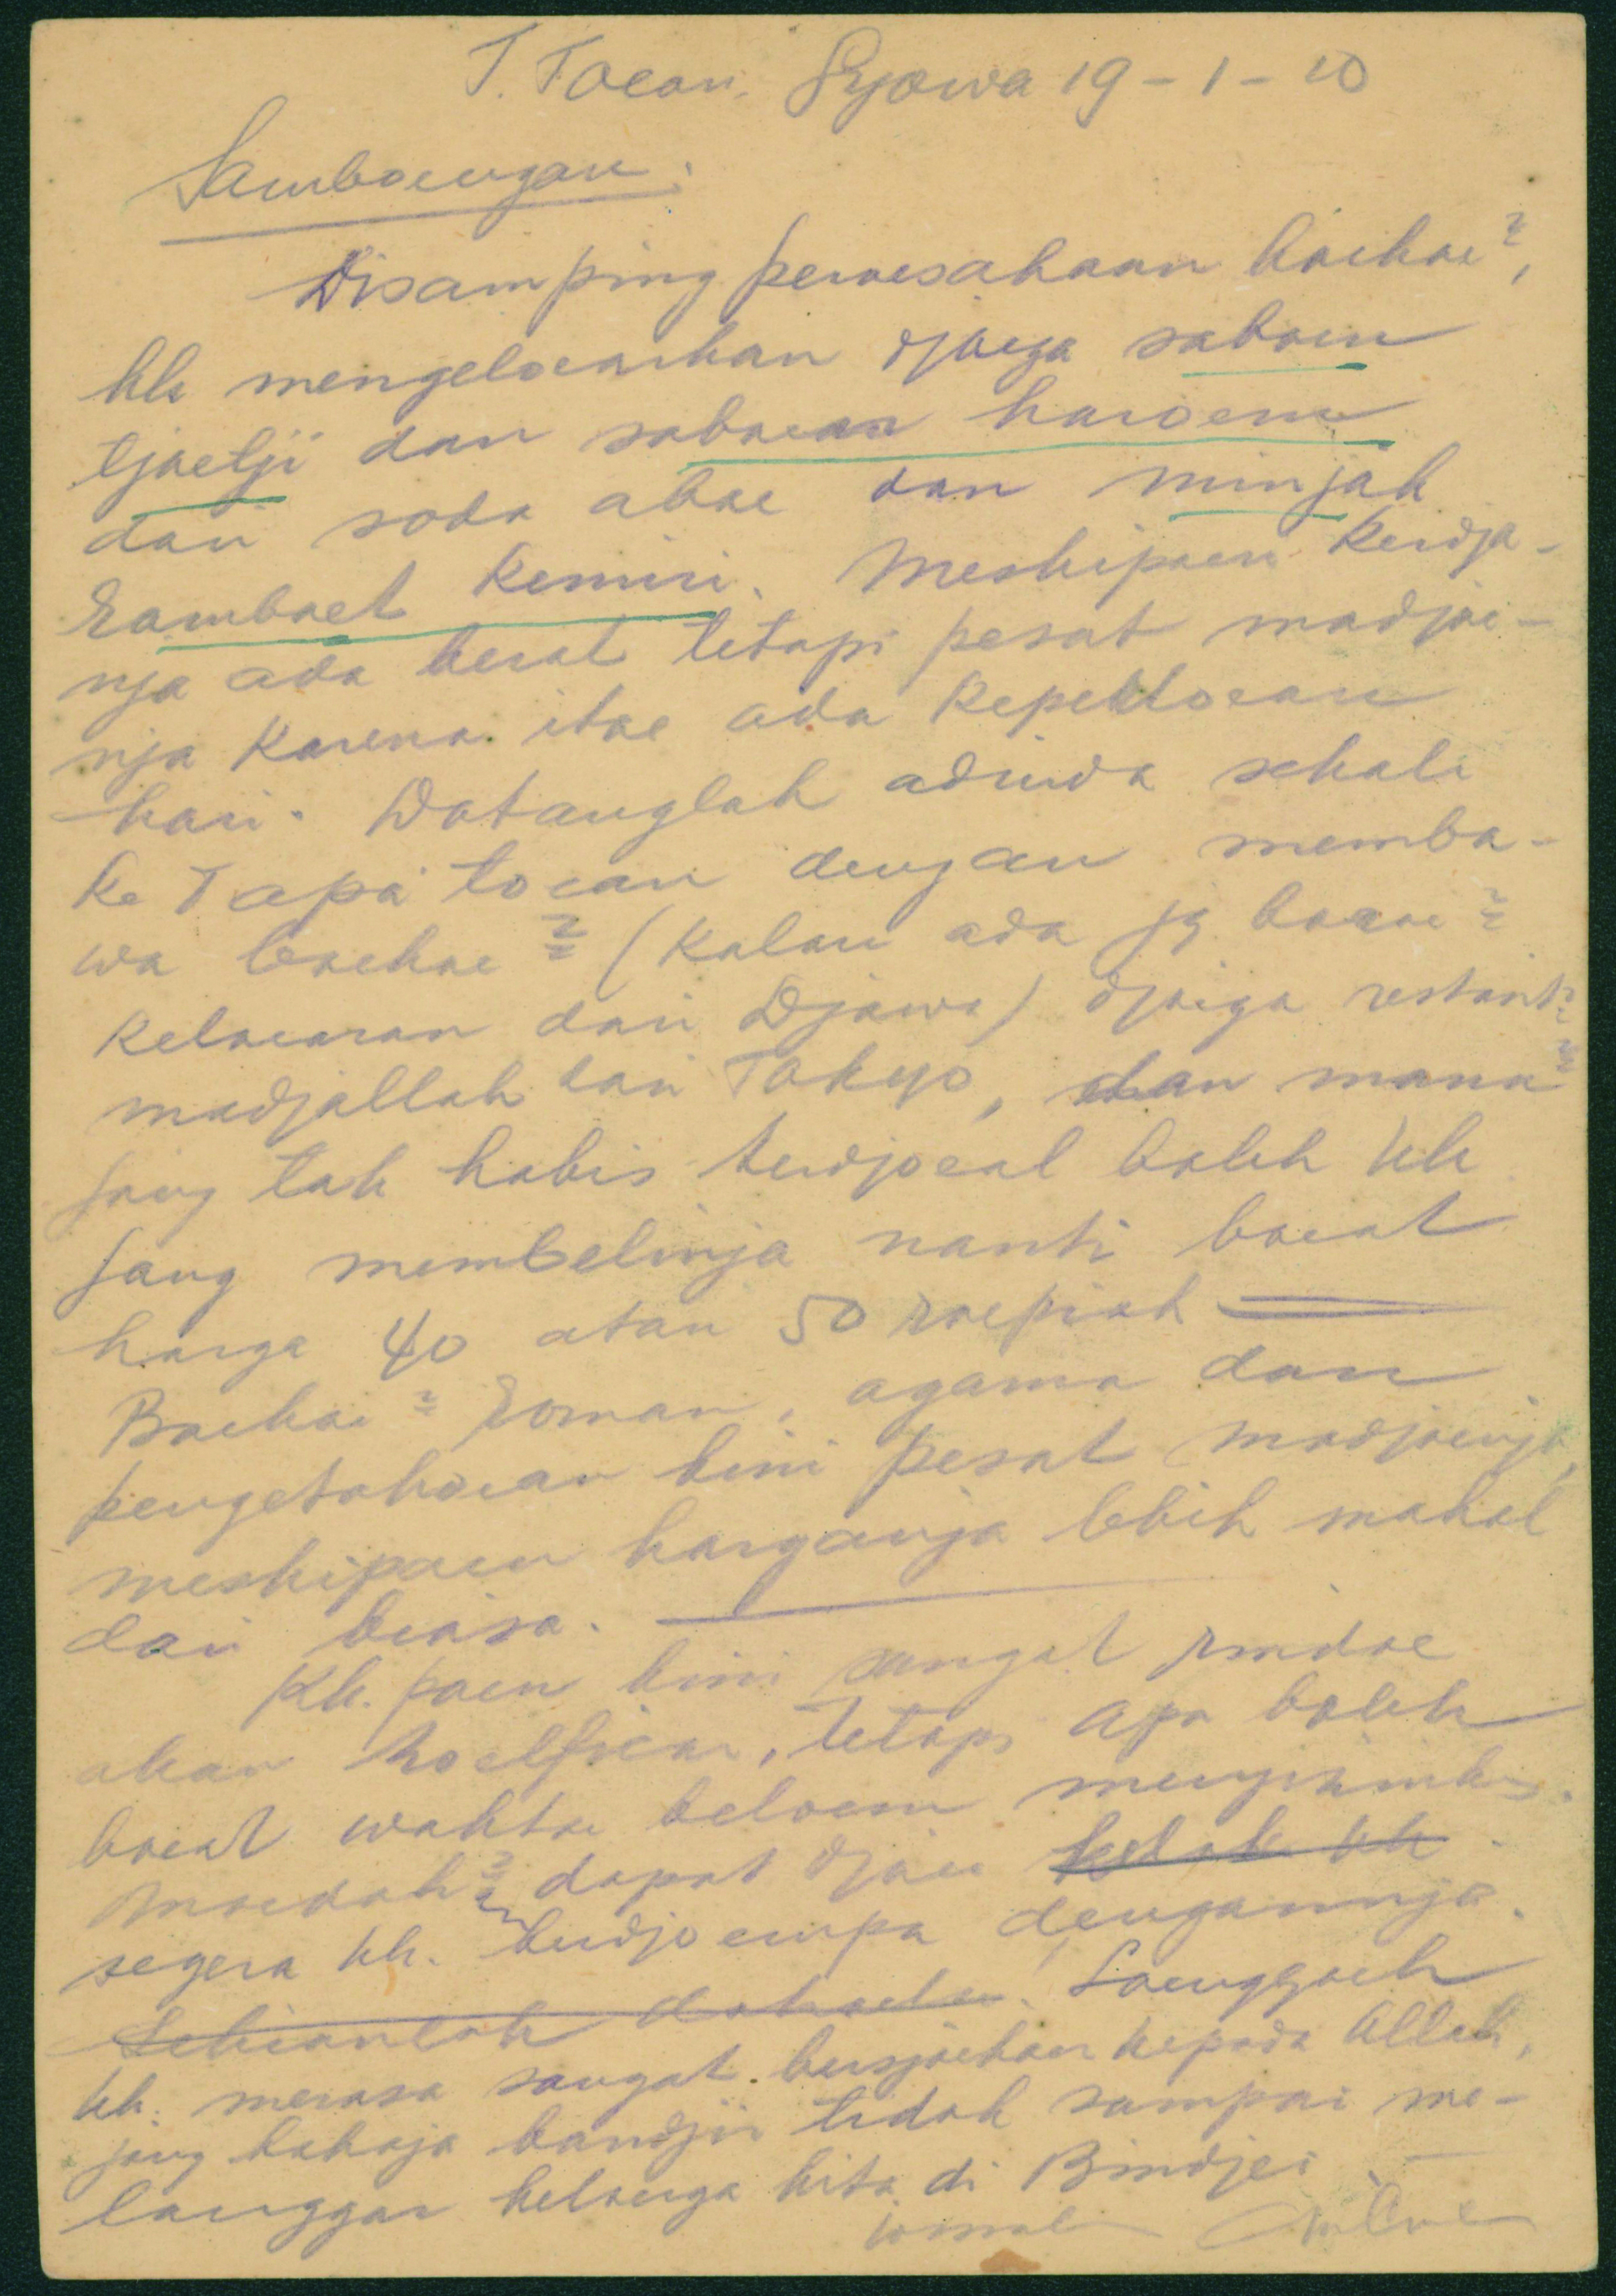 T. Toean, Syowa 19 - 1 - 20
Samboengan:
Disamping peroesahaan boekoe²,
kk mengeloearkan djoega saboen
tjoetji dan saboen haroem
dan soda aboe dan minjak
ramboet kemiri. Meskipoen kerdja-
nja ada berat tetapi pesat madjoe-
nja karena itoe ada keperloean
hari. Datanglah adinda sekali
ke Tapa' toean dengan memba-
wa boekoe² (kalau ada jg baroe²
keloearan dari Djawa) djoega restant²
madjallah dari Tokyo, dan mana²
jang tak habis terdjoeal boleh kk
jang membelinja nanti boeat
harga 40 atau 50 roepiah
Boekoe² roman, agama dan
pengetahoean kini pesat madjoenja,
meskipoen harganja lebih mahal
dari biasa.
Kk. poen kini sangat rindoe
akan, tetapi apa boleh
boeat waktoe beloem mengizinkan.
Moedah² dapat djoea kelak kk
segera kk. berdjoempa dengannja.
Sekianlah dahoeloe. Soenggoeh
kk. merasa sangat bersjoekoer kepada Allah,
jang bahaja bandjir tidak sampai me-
langgar keloearga kita di Bindjei.